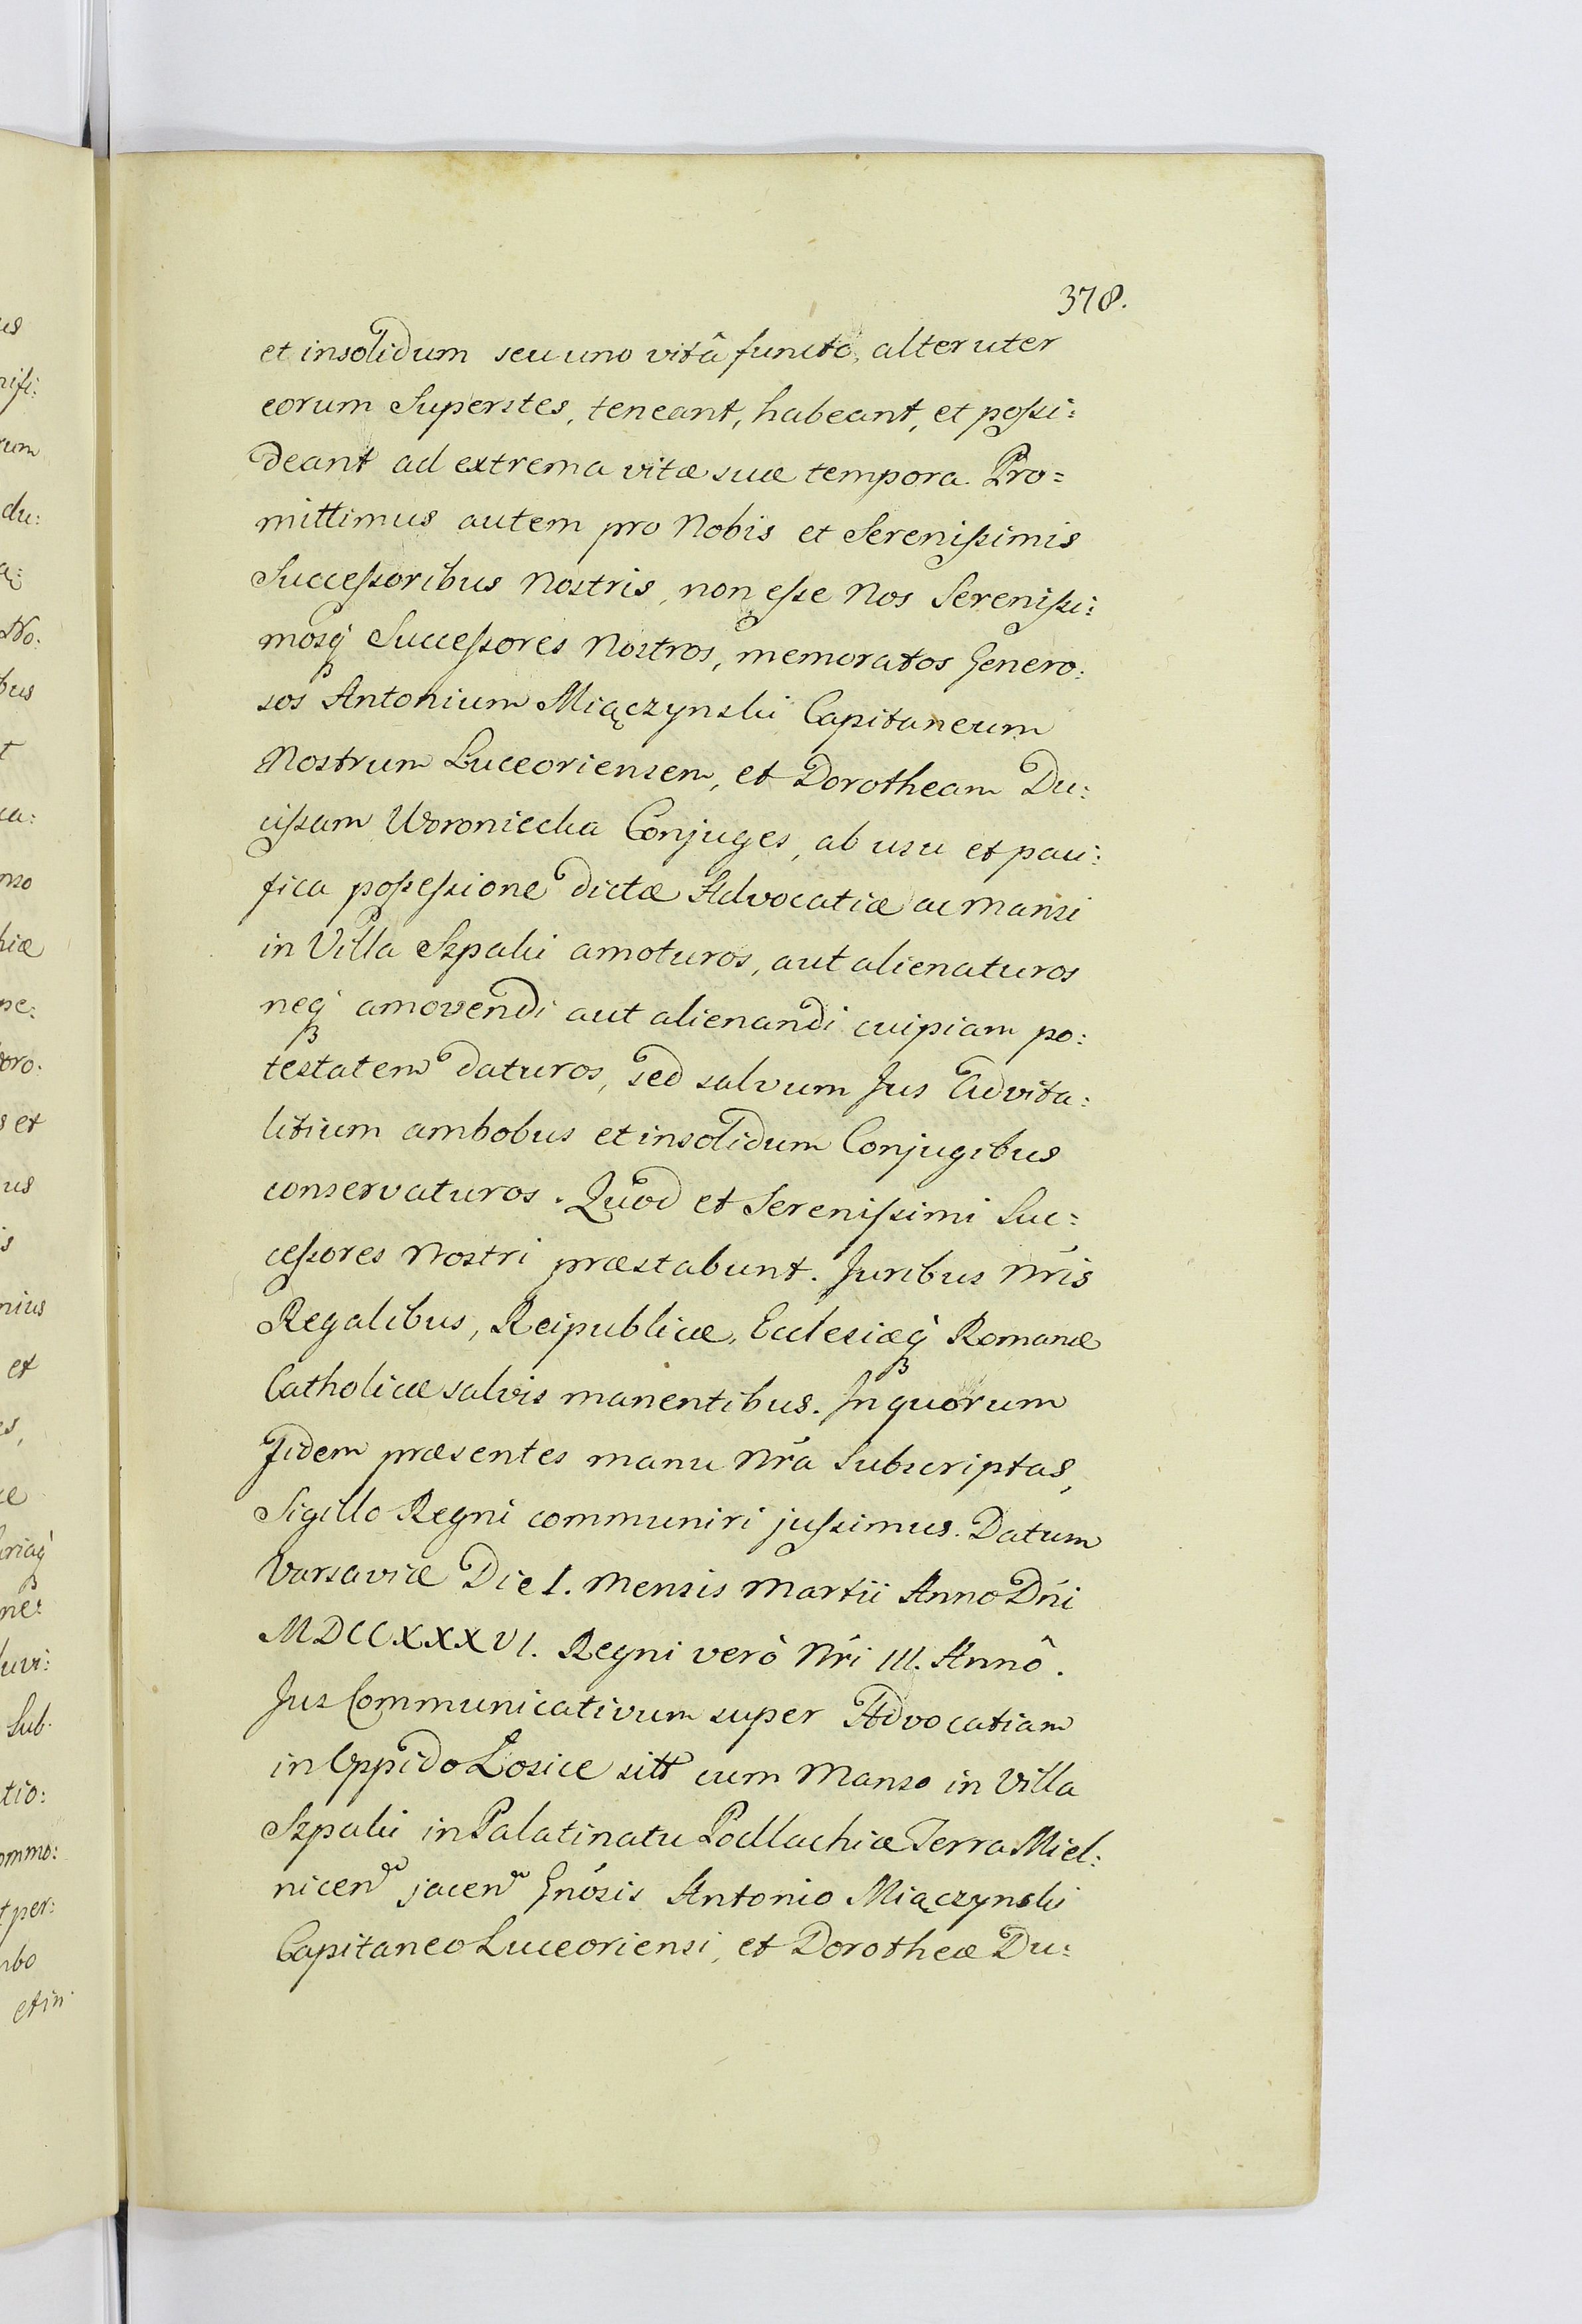 378.
et insolidum seu uno vitâ functo, alteruter
eorum Superstes, teneant, habeant, et possi:
deant ad extrema vitæ suæ tempora. Pro=
mittimus autem pro Nobis et Serenissimis
Successoribus Nostris, non esse Nos Serenissi:
mosq̃ Successores Nostros, memoratos Genero:
sos Antonium Miączynski Capitaneum
Nostrum Luceoriensem, et Dorotheam Du:
cissam Woroniecka Conjuges, ab usu et paci:
fica possessione dictæ Advocatiæ ac Mansi
in Villa Szpaki amoturos, aut alienaturos
neq̃ amovendi aut alienandi cuipiam po:
testatem daturos, sed salvum Jus Advita:
litium ambobus et insolidum Conjugibus
conservaturos. Quod et Serenissimi Suc:
cessores Nostri præstabunt. Juribus Nr̃is
Regalibus, Reipublicæ, Ecclesiæq̃ Romanæ
Catholicæ salvis manentibus. In quorum
Fidem præsentes manu Nr̃a Subscriptas,
Sigillo Regni communiri jussimus. Datum
Varsaviæ Die I. Mensis Martii Anno Dñi
MDCCXXXVI. Regni verò Nr̃i III. Annô.
Jus Communicativum super Advocatiam
in Oppido Łosice sitt cum Manso in Villa
Szpaki in Palatinatu Podlachiæ Terra Miel:
nicen jacen Gñosis Antonio Miączynski
Capitaneo Luceoriensi, et Dorotheæ Du:
us
nifi:
rum
du:
No:
bus
t
ca:
nso
hiæ
ne:
oro:
s et
us
is
nius
et
es,
ce
riaq̃
ne:
uvi:
Sub.
tio:
ommo:
t per:
mbo
et in.